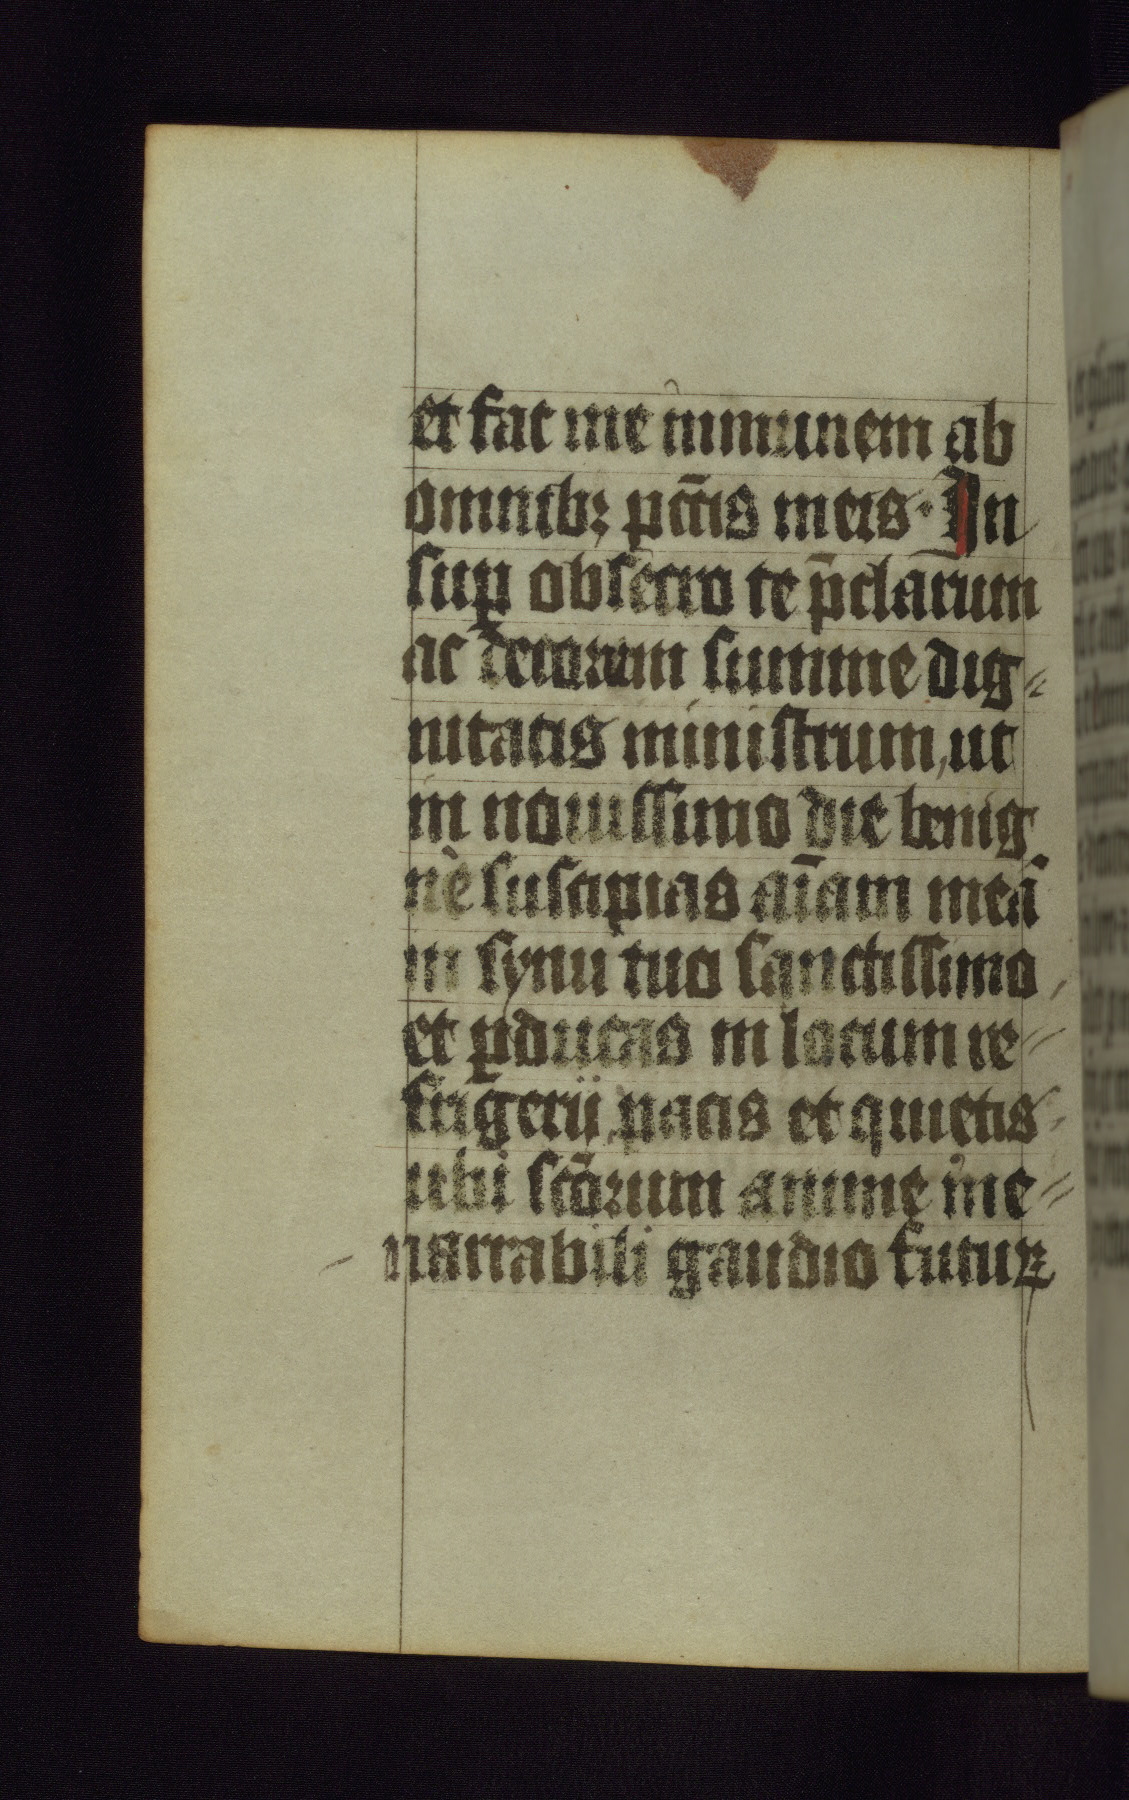 et fac me inmunem ab
omnibꝫ pcc̄is meis · In
suꝑ obsecro te p̄clarum
ac decorum summe dig⸗
nitatis ministrum, ut
in nouissimo die benig
ne suscipias aīam meā
in synu tuo sanctissimo
et ꝑducas in locum re⸗
frigerij pacis et quietis
ubi scōrum anime ine⸗
narrabili gaudio futuꝝ